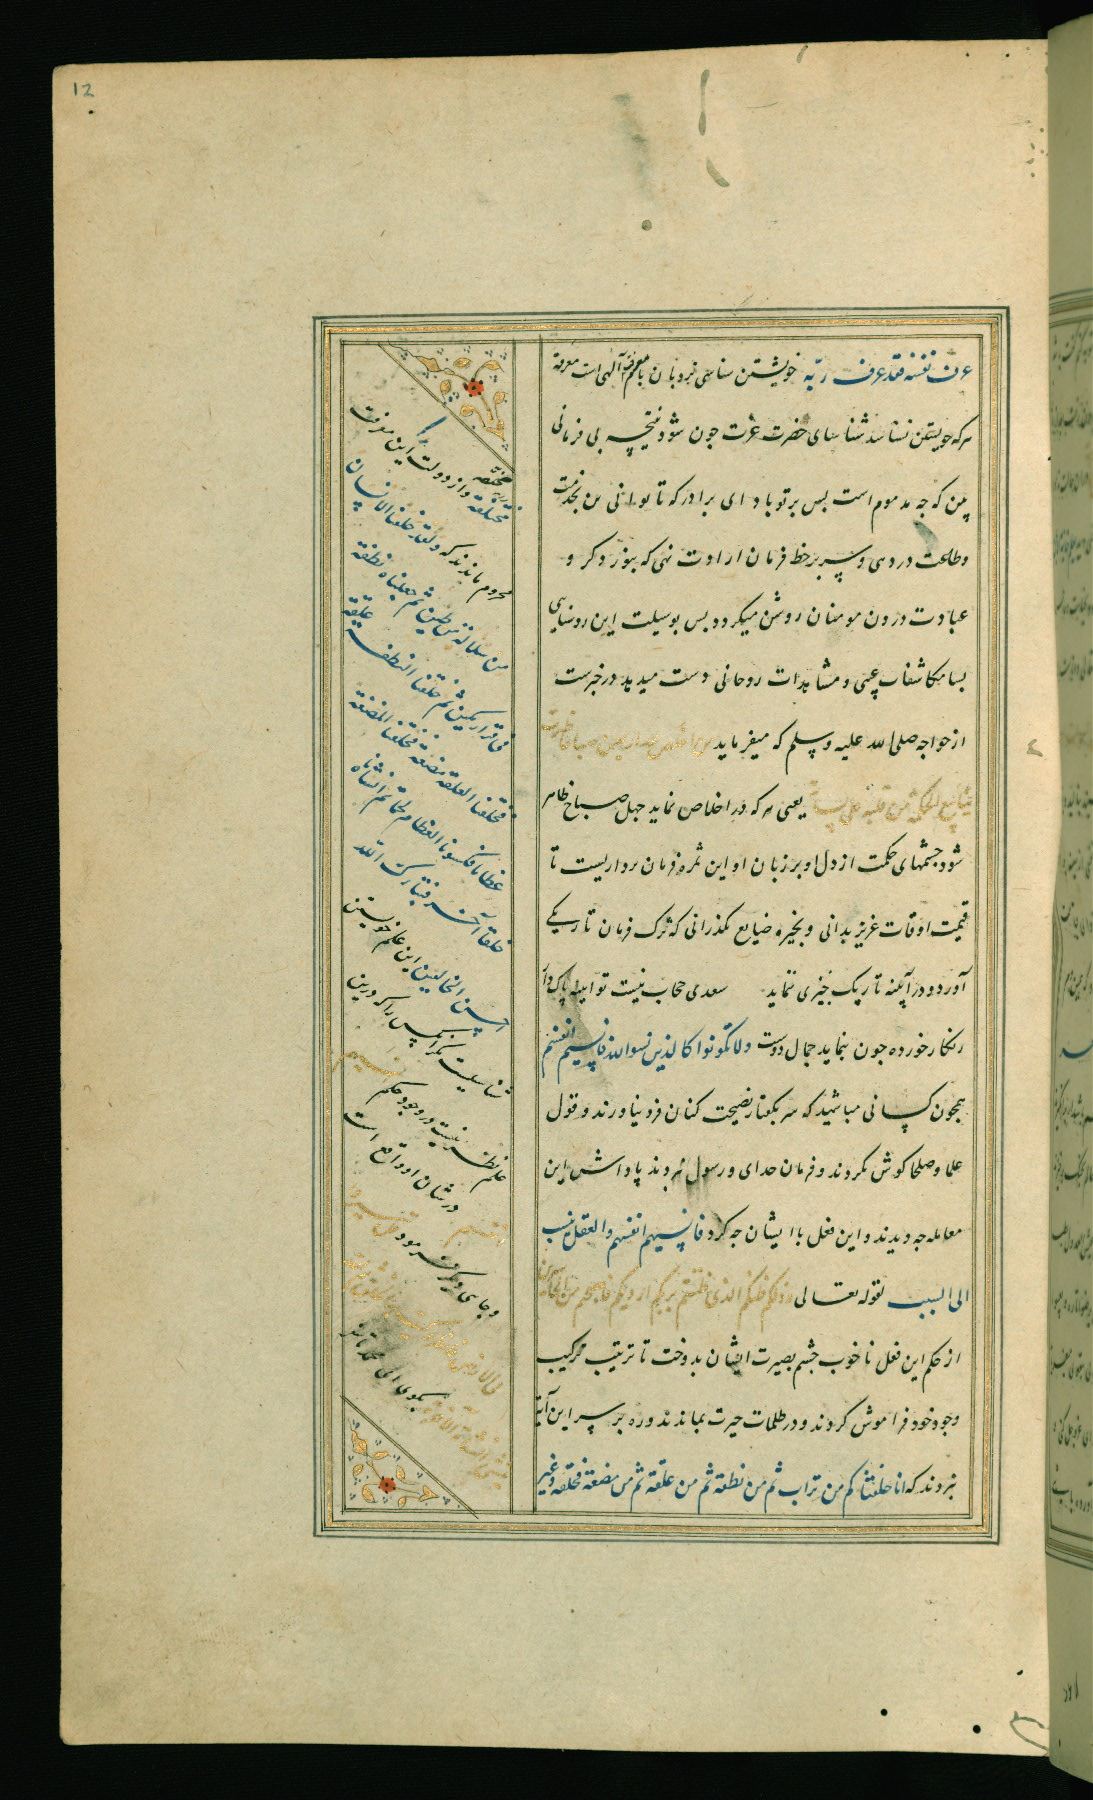 12
عرف نفسه فقد عرف ربه خویشتن سناسی نردبان بام معرفة آلهی است معرفة
هرکه خویشتن نساسد شناسای حضرت عزت جون شود نتیجه بی فرمانی
ببین که جه مذموم است بس برتو باد ای برادر که تا توانی من بخدمت
وطاعت در دهی وسر برخط فرمان ارادت نهی که بنور ذکر و
عبادت درون مومنان روشن میکردد بس بوسیلت این روشنایی
بسا مکاشفات غیبی و مشاهدات روحانی دست میدهد در خبرست
از خواجه صلی الله علیه وسلم که میفرماید من اخلص لله اربعین صباحا ظهرت
ینابیع الحکمة من قلبه علی لسانه یعنی هرکه در اخلاص نماید جهل صباح ظاهر
شود جشمهای حکمت از دل او بر زبان او این ثمره فرمان برداریست تا
قیمت اوقات عزیز بدانی و بخیره ضایع نکذرانی که ترک فرمان تاریکی
آورد و در آینه تاریک جیزی ننماید سعدی حجاب نیست تو آینه پاک دار
زنکار خورده جون بنماید جمال دوست ولا تکونوا کالذین نسوا الله فانسیهم انفسهم
همجون کسانی مباشید که سر بکفتار نصیحت کنان فرو نیاورند و قول
علما وصلحا کوش نکردند و فرمان خدای و رسول نبردند پاداش این
معامله جه دیدند و این فعل با ایشان جه کرد فانسیهم انفسهم والعقل ینسب
الی السبب لقوله تعالی وذلکم ظنکم الذی ظننتم بربکم اردیکم فاصبحتم من الخاسرین
از حکم این فعل ناخوب جشم بصیرت ایشان بدوخت تا ترتیب ترکیب
وجود خود فراموش کردند و در ظلمات حیرت بماندند و ره بر سر این آیة
نبردند که انا خلقناکم من تراب ثم من نطفة ثم من علقة ثم من مضغة مخلقة وغیر
مخلقة واز دولت این معرفت
محروم ماندند که ولقد خلقنا الانسان
من سلالة من طین ثم جعلناه نطفة
فی قرار مکین ثم خلقنا النطفة علقة
فخلقنا العلقة مضغة فخلقنا المضغة
عظاما فکسونا العظام لحما ثم انشاناه
خلقا آخر فتبارک الله
احسن الخالقین این علم خویشتن
شناسیست مکر آنکس را که درین
علم نظر نیست در وجود حکم انسیهم
انفسهم در شان او واقع است
وجای دیکر فرمود قل سیروا
فی الارض فانظروا کیف بدا الخلق ثم الله
ینشئ النشاة الاخرة بکوی ای محمد تا